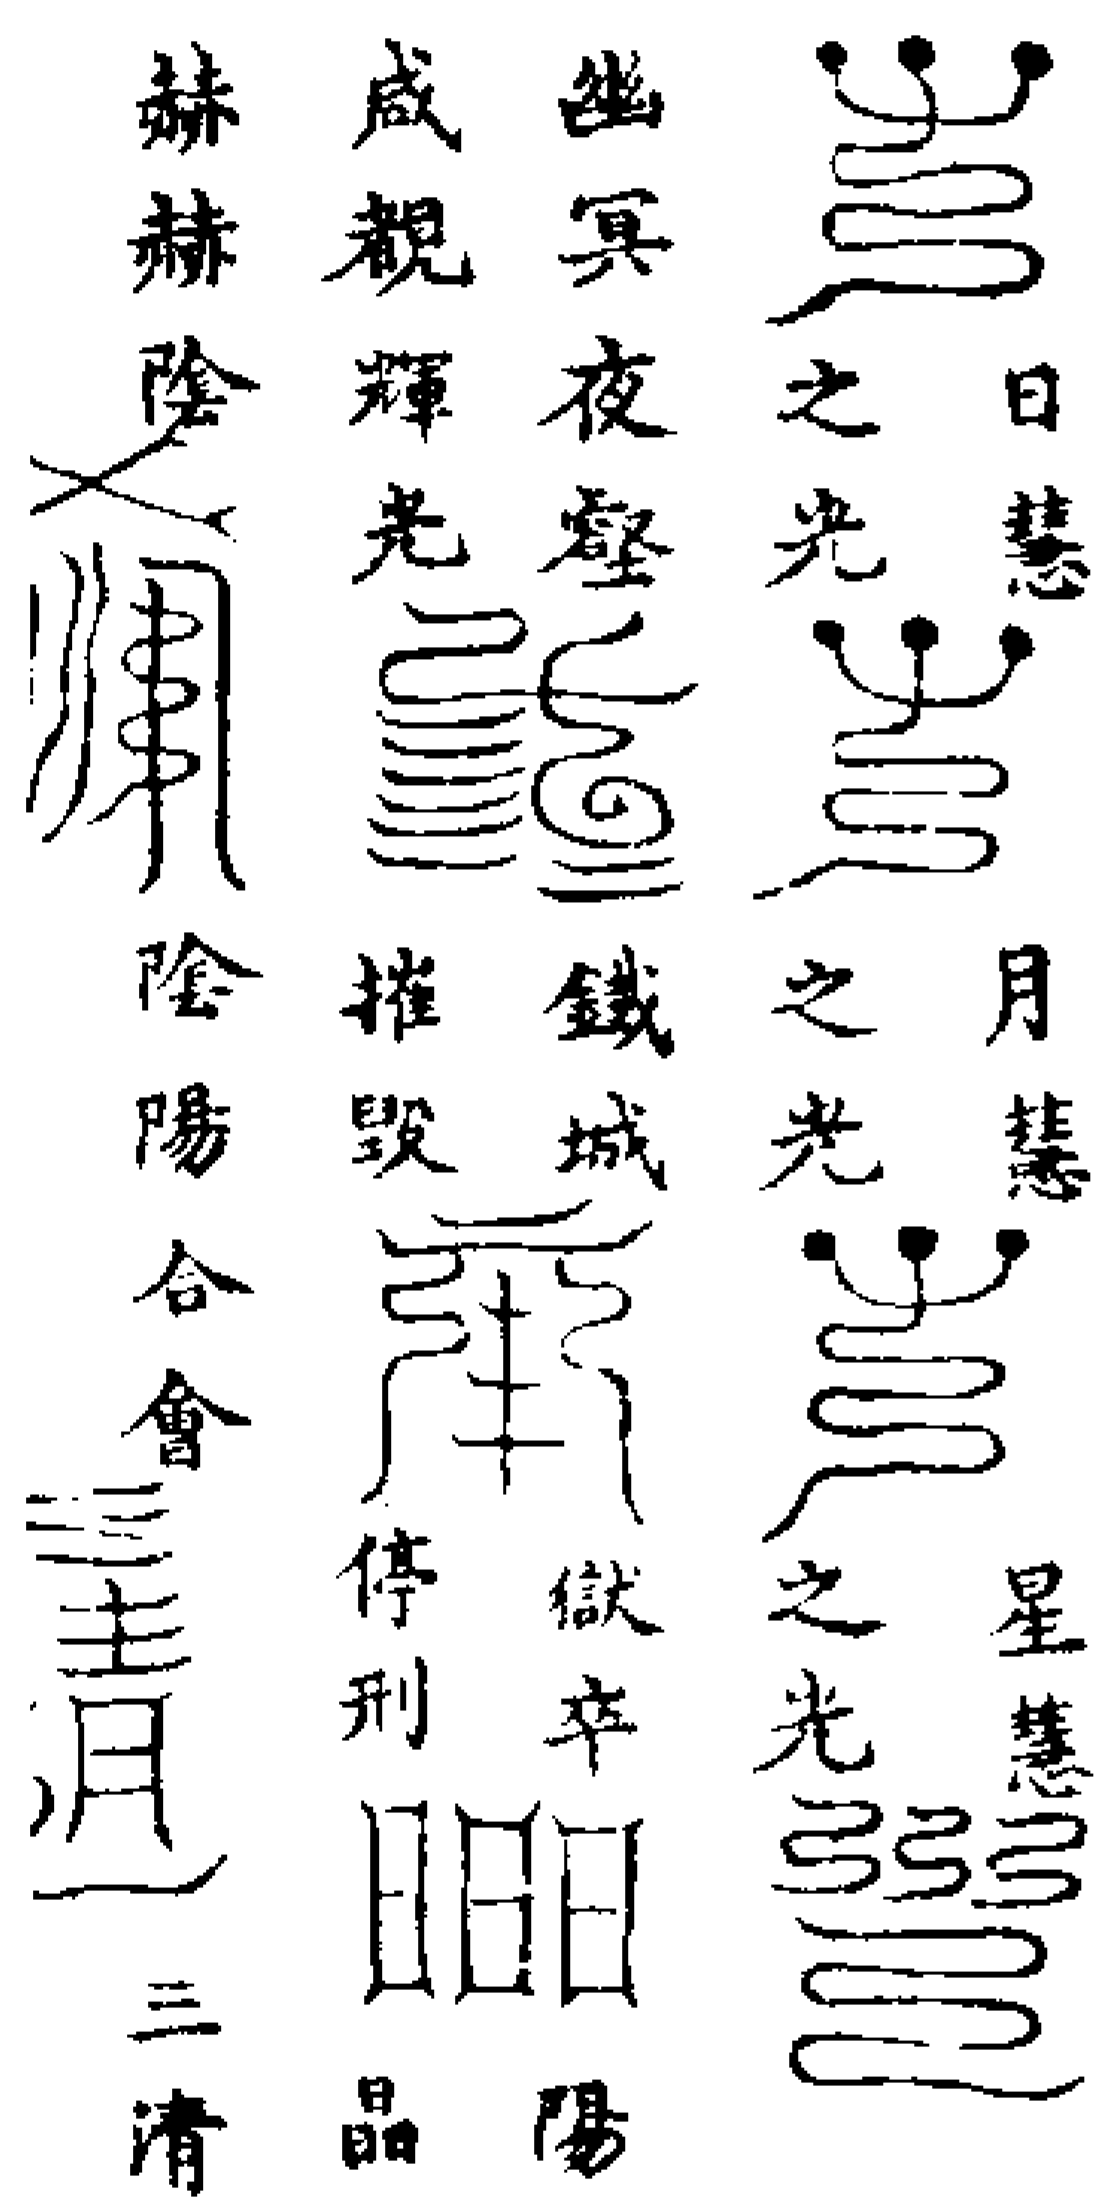 日慧
之光
月慧
之光
星慧
之光
幽冥夜壑
咸覩輝光
鐵城
摧毀
獄卒
停刑
陽
晶
赫赫陰
陰陽合會
三清